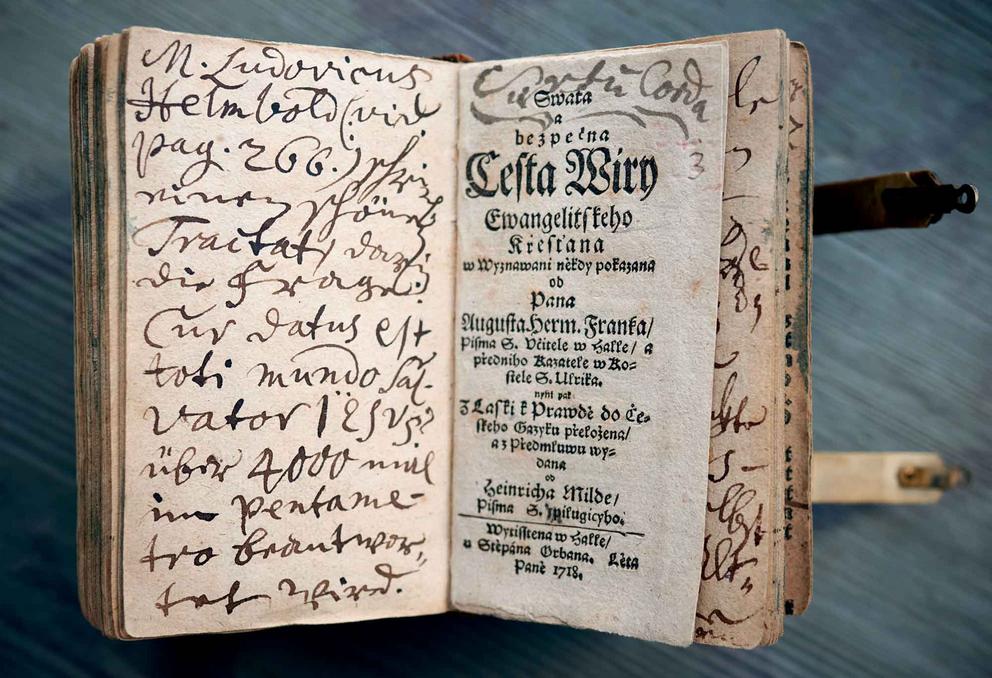 M. Ludovicus
Helmbold (vid
pag. 266.) schri
einen schönen
Tractat, darin
die Frage:
Cur datus est
toti mundo Sal-
vator IESUS?
über 4000 mal
im pentame-
tro beantwor-
tet wird.
Swata
a
bezpečna
Cesta Wiry
Ewangelitſkeho
Křeſťana
w Wyznawani někdy pokazana
od
Pana
Auguſta Herm. Franka/
Piſma S. Včitele w Halle/ a
předniho Kazatele w Ko-
ſtele S. Ulrika.
nyni pak
Z Laſki k Prawdě do Če-
ſkeho Gazyku přeložena/
a z Předmluwu wy-
dana
od
Heinricha Milde/
Piſma S.
Wytiſſtena w Halle/
u Stěpána Orbana. Léta
Paně 1718.
3